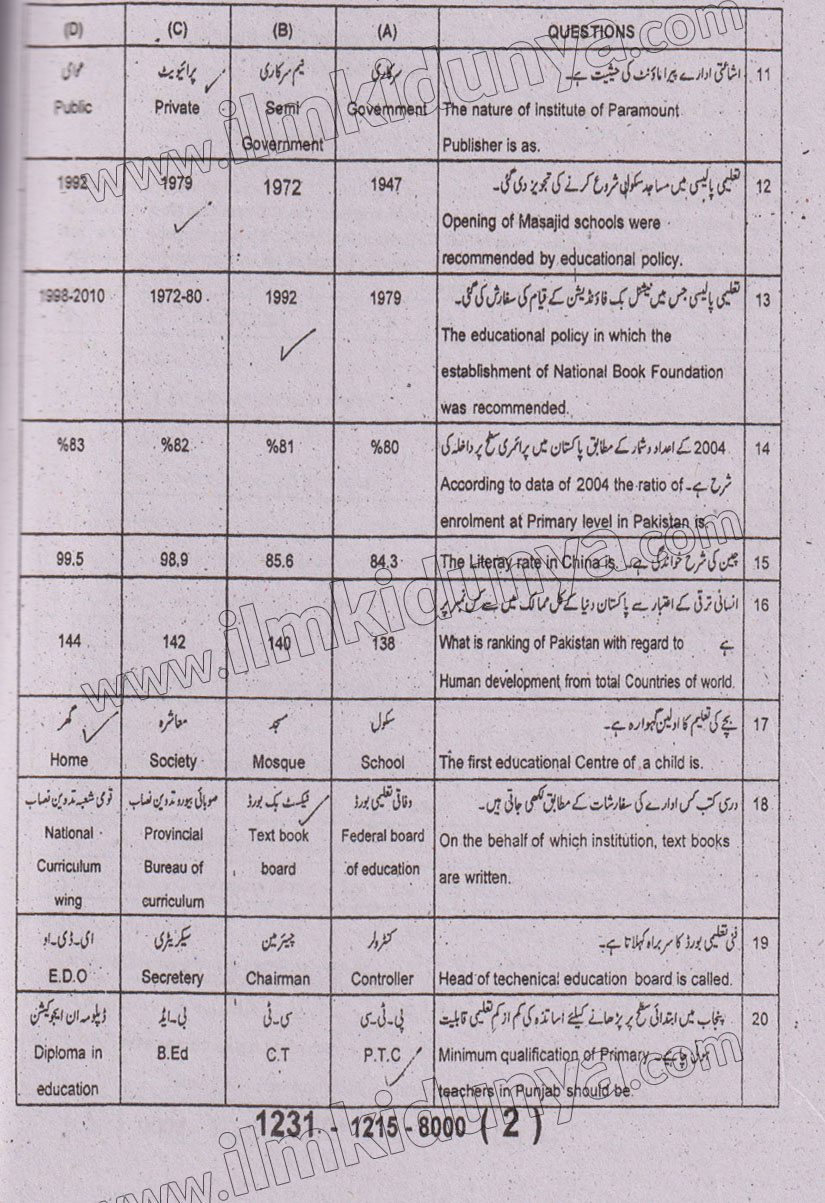 (D) (C) (B) (A) QUESTIONS
پرائیویٹ نیم سرکاری سرکاری اشاعتی ادارے پیراماؤنٹ کی حیثیت ہے۔ 11
Public Private Semi Government The nature of Institute of Paramount
Government Publisher is as.
1992 1979 1972 1947 تعلیمی پالیسی میں مساجد سکول شروع کرنے کی تجویز دی گئی۔ 12
Opening of Masajid schools were
recommended by educational policy.
1998-2010 1972-80 1992 1979 تعلیمی پالیسی جس میں نیشنل بک فاؤنڈیشن کے قیام کی سفارش کی گئی۔ 13
The educational policy in which the
establishment of National Book Foundation
was recommended.
%83 %82 %81 %80 2004 کے اعداد و شمار کے مطابق پاکستان میں پرائمری سطح پر داخلہ کی 14
According to data of 2004 the ratio of شرح ہے۔
enrolment at Primary level in Pakistan is
99.5 98.9 85.6 84.3 The Literay rate in China is. چین کی شرح خواندگی ہے۔ 15
انسانی ترقی کے اعتبار سے پاکستان دنیا کے کل ممالک میں سے کس نمبر پر 16
144 142 140 138 What is ranking of Pakistan with regard to ہے
Human development from total Countries of world.
گھر معاشرہ مسجد سکول بچے کی تعلیم کا اولین گہوارہ ہے۔ 17
Home Society Mosque School The first educational Centre of a child is.
قومی شعبہ تدوین نصاب صوبائی بیورو تدوین نصاب ٹیکسٹ بک بورڈ وفاقی تعلیمی بورڈ درسی کتب کس ادارے کی سفارشات کے مطابق لکھی جاتی ہیں۔ 18
National Provincial Text book Federal board On the behalf of which institution, text books
Curriculum Bureau of board of education are written.
wing curriculum
ای۔ڈی۔او سیکریٹری چیئرمین کنٹرولر فنی تعلیمی بورڈ کا سربراہ کہلاتا ہے۔ 19
E.D.O Secretery Chairman Controller Head of techenical education board is called.
ڈپلومہ ان ایجوکیشن بی۔ایڈ سی۔ٹی پی۔ٹی۔سی پنجاب میں ابتدائی سطح پر پڑھانے کیلئے اساتذہ کی کم از کم تعلیمی قابلیت 20
Diploma in B.Ed C.T P.T.C Minimum qualification of Primary ہونی چاہیے۔
education teachers in Punjab should be.
1231 - 1215 - 8000 ( 2 )
www.ilmkidunya.com
www.ilmkidunya.com
www.ilmkidunya.com